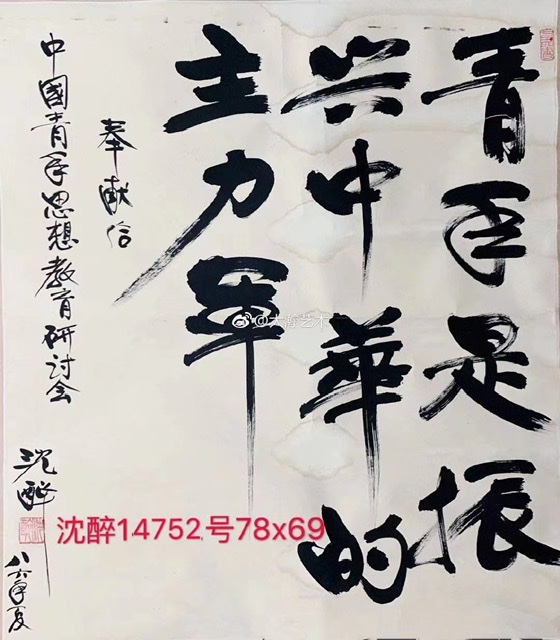 青年是振
兴中華的
主力軍
奉献给
中國青年思想教育研讨会
沈醉
八六年夏
沈醉14752号78x69